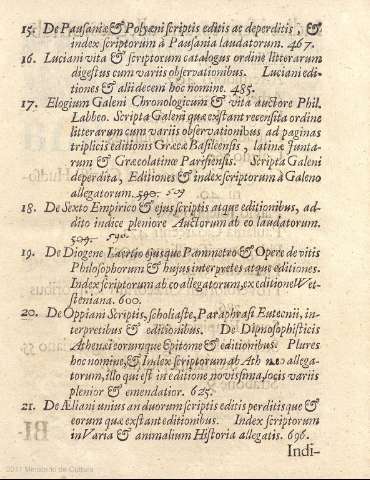 15. De Pausaniæ & Polyæni scriptis editis ac deperditis, &
index scriptorum à Pausania laudatorum. 467.
16. Luciani vita & scriptorum catalogus ordine litterarum
digestus cum variis observationibus. Luciani edi-
tiones & alii deceni hoc nomine. 485.
17. Elogium Galeni Chronologicum & vita auctore Phil.
Labbeo. Scripta Galeni quæ exstant recensita ordine
litterarum cum variis observationibus ad paginas
triplicis editionis Græcæ Basileensis, latinæ Junta-
rum & Græcolatinæ Parisiensis. Scripta Galeni
deperdita, Editiones & index scriptorum à Galeno
allegatorum. 590. 509
18. De Sexto Empirico & ejus scriptis atque editionibus, ad-
dito indice pleniore Auctorum ab eo laudatorum.
509. 590.
19. De Diogene Laertio ejusque Pammetro & Opere de vitis
Philosophorum & hujus interpretes atque editiones.
Index scriptorum ab eo allegatorum, ex editione Wet-
steniana. 600.
20. De Oppiani Scriptis, scholiaste, Paraphrasi Eutecnii, in-
terpretibus & editionibus. De Dipnosophisticis
Athenæi eorumque Epitome & editionibus. Plures
hoc nomine, & Index scriptorum ab Ath næo allega-
torum, illo qui est in editione novissima, locis variis
plenior & emendatior. 625.
21. De Æliani unius an duorum scriptis editis perditisque &
eorum quæ exstant editionibus. Index scriptorum
in Varia & animalium Historia allegatis. 696.
Indi-
2011 Ministerio de Cultura